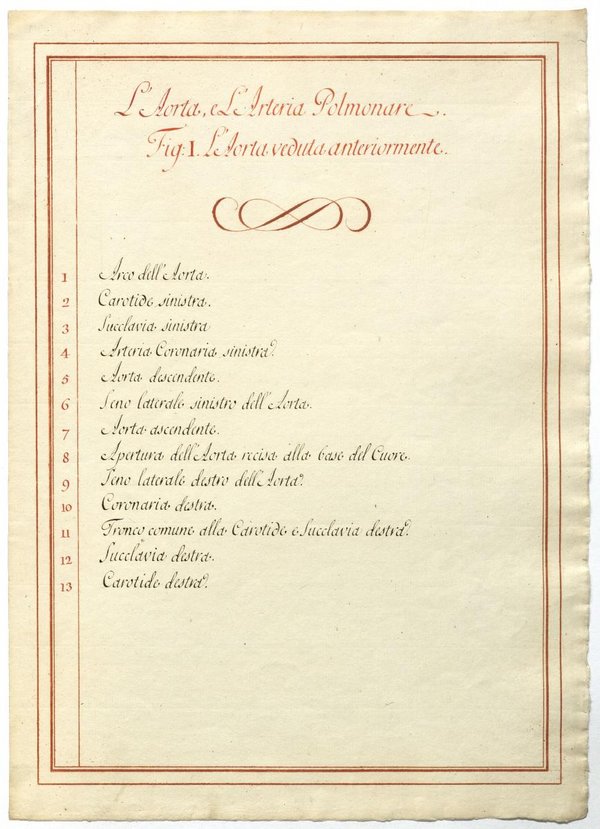 L'Aorta, e L'Arteria Polmonare.
Fig: I. L'Aorta veduta anteriormente.
1 Arco dell'Aorta.
2 Carotide sinistra.
3 Succlavia sinistra
4 Arteria Coronaria sinistra.
5 Aorta descendente.
6 Seno laterale sinistro dell'Aorta.
7 Aorta ascendente.
8 Apertura dell'Aorta recisa alla base del Cuore.
9 Seno laterale destro dell'Aorta.
10 Coronaria destra.
11 Tronco comune alla Carotide e Succlavia destra.
12 Succlavia destra.
13 Carotide destra.